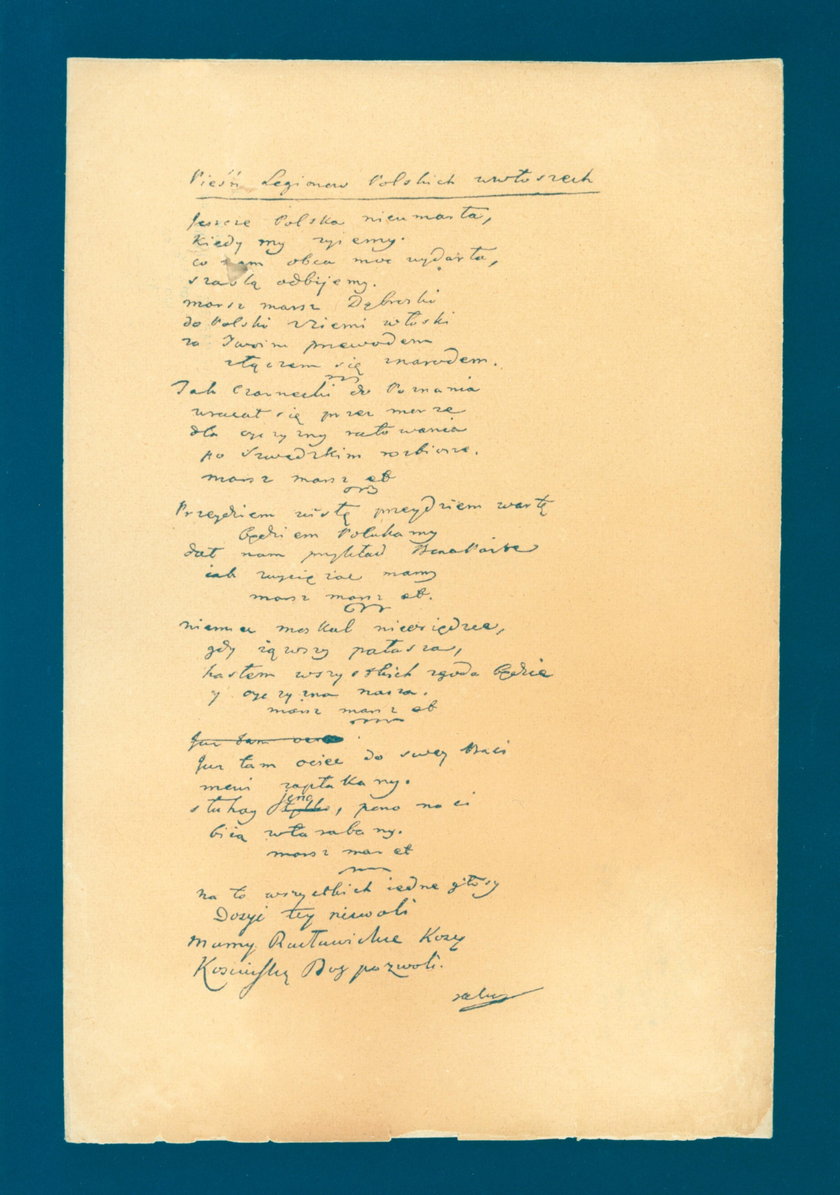 Pieśń Legionow Polskich wewłoszech
Jeszcze Polska nieumarła,
kiedy my zyiemy.
co nam obca moc wydarła,
szablą odbijemy.
marsz marsz Dąbroski
do Polski zZiemi włoski
za Twoim przewodem
złączem się znarodem.
Jak Czarnecki do Poznania
wracał się przez morze
dla oyczyzny ratowania
po Szwedzkim rozbiorze.
marsz marsz et
Przeydziem wisłę przeydziem wartę
będziem Polakamy
dał nam przykład BonaParte
iak zwycięzac mamy
marsz marsz et.
niemiec moskal nieosiędzee,
gdy iąwszy pałasza,
hasłem wszystkich zgoda będzie
y oyczyzna nasza.
marsz marsz et
Juz tam ocie
Juz tam ociec do swey Basi
mowi zapłakany.
słuhay jeno, pono nasi
biią wtarabany.
marsz mar et
na to wszystkich iedne głosy
Dosyć tey niewoli
mamy Racławickie Kosy
Kosciuszkę Bog pozwoli.